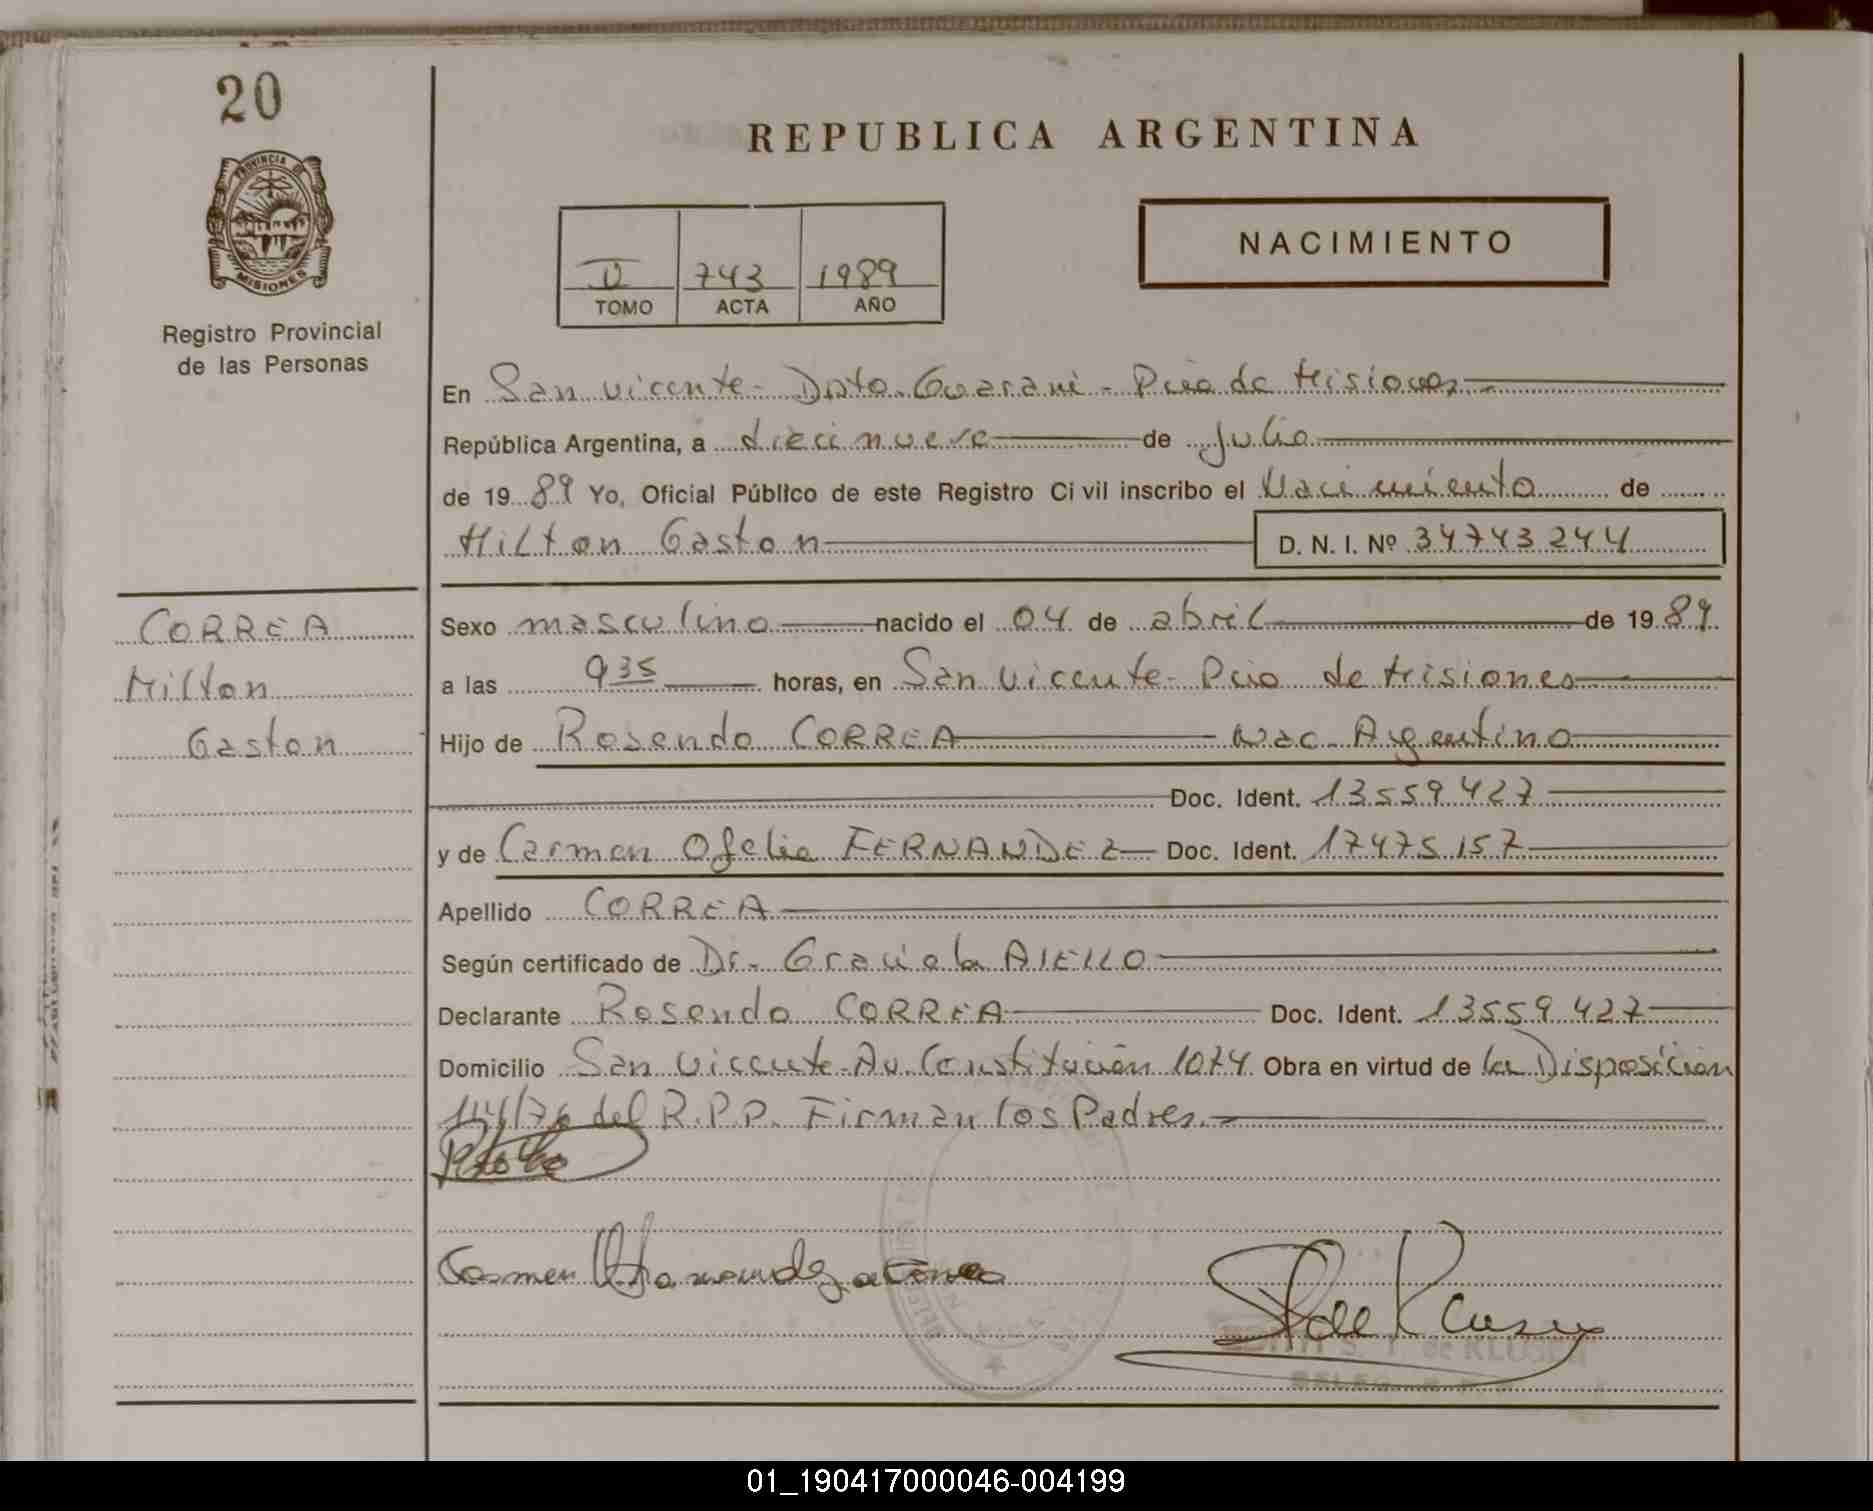 20
REPUBLICA ARGENTINA
PROVINCIA DE
MISIONES
Registro Provincial
de las Personas
NACIMIENTO
743 1989
TOMO ACTA AÑO
En San Vicente - Dpto. Guarani - Pcia de Misiones
República Argentina, a diecinueve de Julio
de 1989 Yo, Oficial Público de este Registro Civil inscribo el Nacimiento de
Milton Gaston D. N. I. Nº 34743244
CORREA
Milton
Gaston
Sexo masculino nacido el 04 de abril de 1989
a las 9 35 horas, en San Vicente - Pcia de Misiones
Hijo de Rosendo CORREA Nac. Argentino
Doc. Ident. 13559427
y de Carmen Ofelia FERNANDEZ Doc. Ident. 17475157
Apellido CORREA
Según certificado de Dr. Graciela AIELLO
Declarante Rosendo CORREA Doc. Ident. 13559427
Domicilio San Vicente - Av. Constitución 1074 Obra en virtud de la Disposición
del R.P.P. Firman los Padres.
Carmen
de KLUSEN
01_190417000046-004199